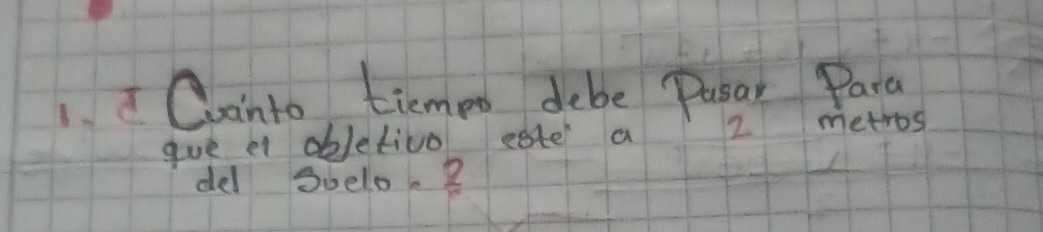 1. ¿ Cuánto tiempo debe Pasar Para
que el objetivo esté a 2 metros
del Suelo. ?